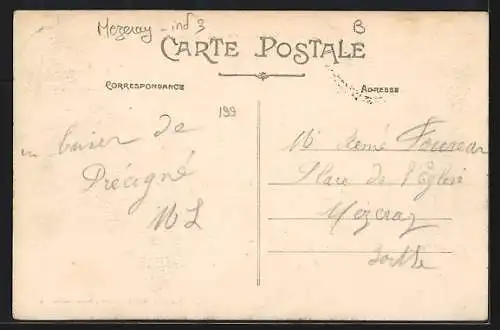 Mezeray - ind 3
B
CARTE POSTALE
CORRESPONDANCE
ADRESSE
199
un baiser de
Précigné
ML
Mr René Fournier
Place de l'Église
Mézeray
Sarthe